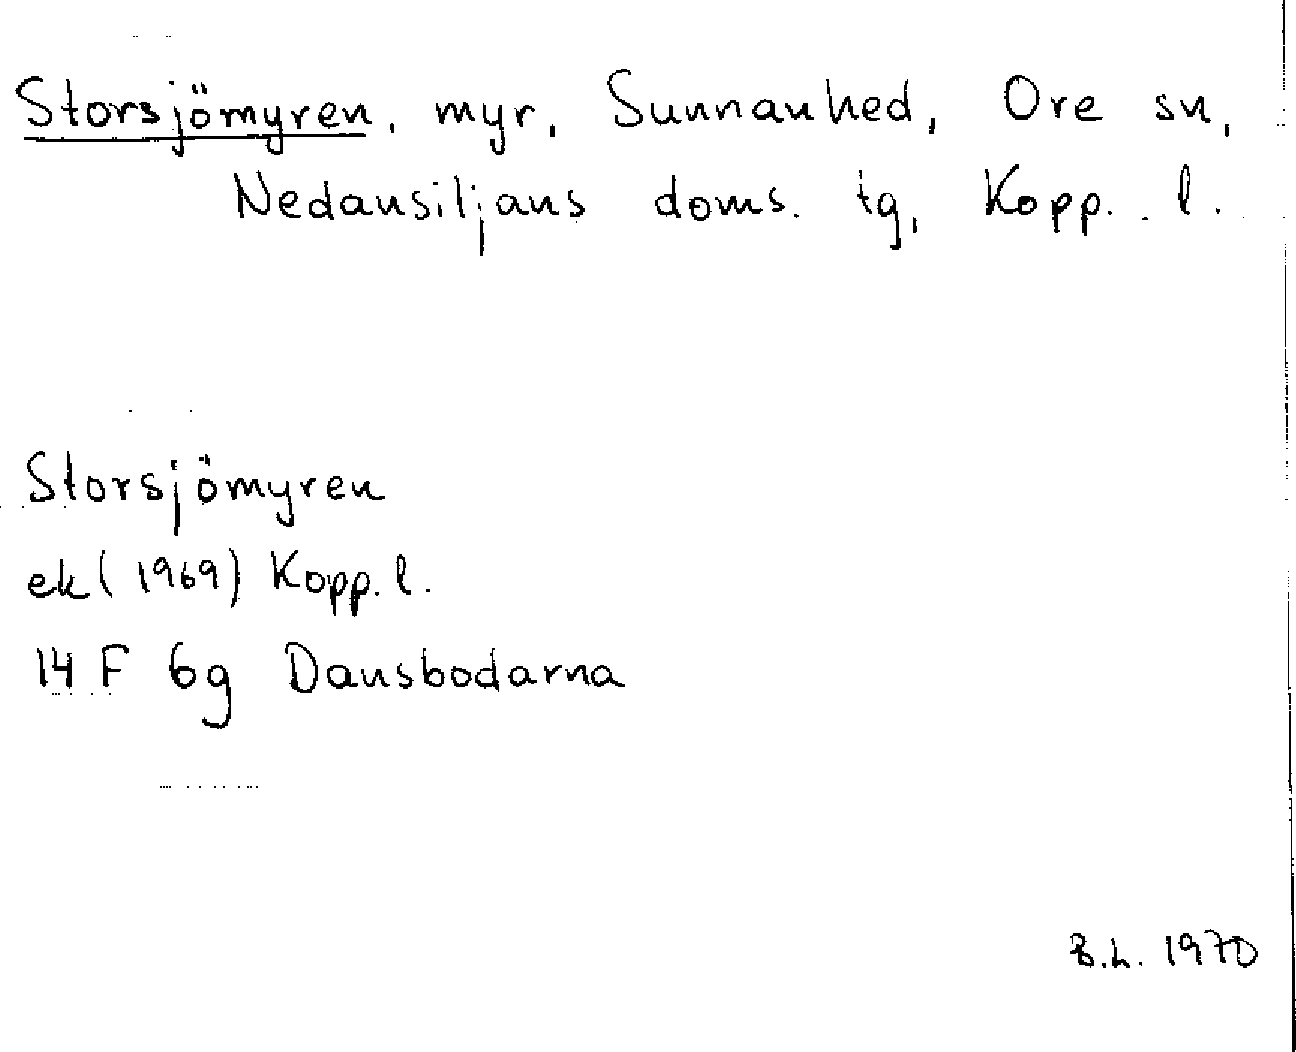 Storsjömyren, myr, Sunnanhed, Ore sn,
Nedansiljans doms. tg, Kopp. l.
Storsjömyren
ek (1969) Kopp. l.
14 F 6g Dansbodarna
B.L. 1970